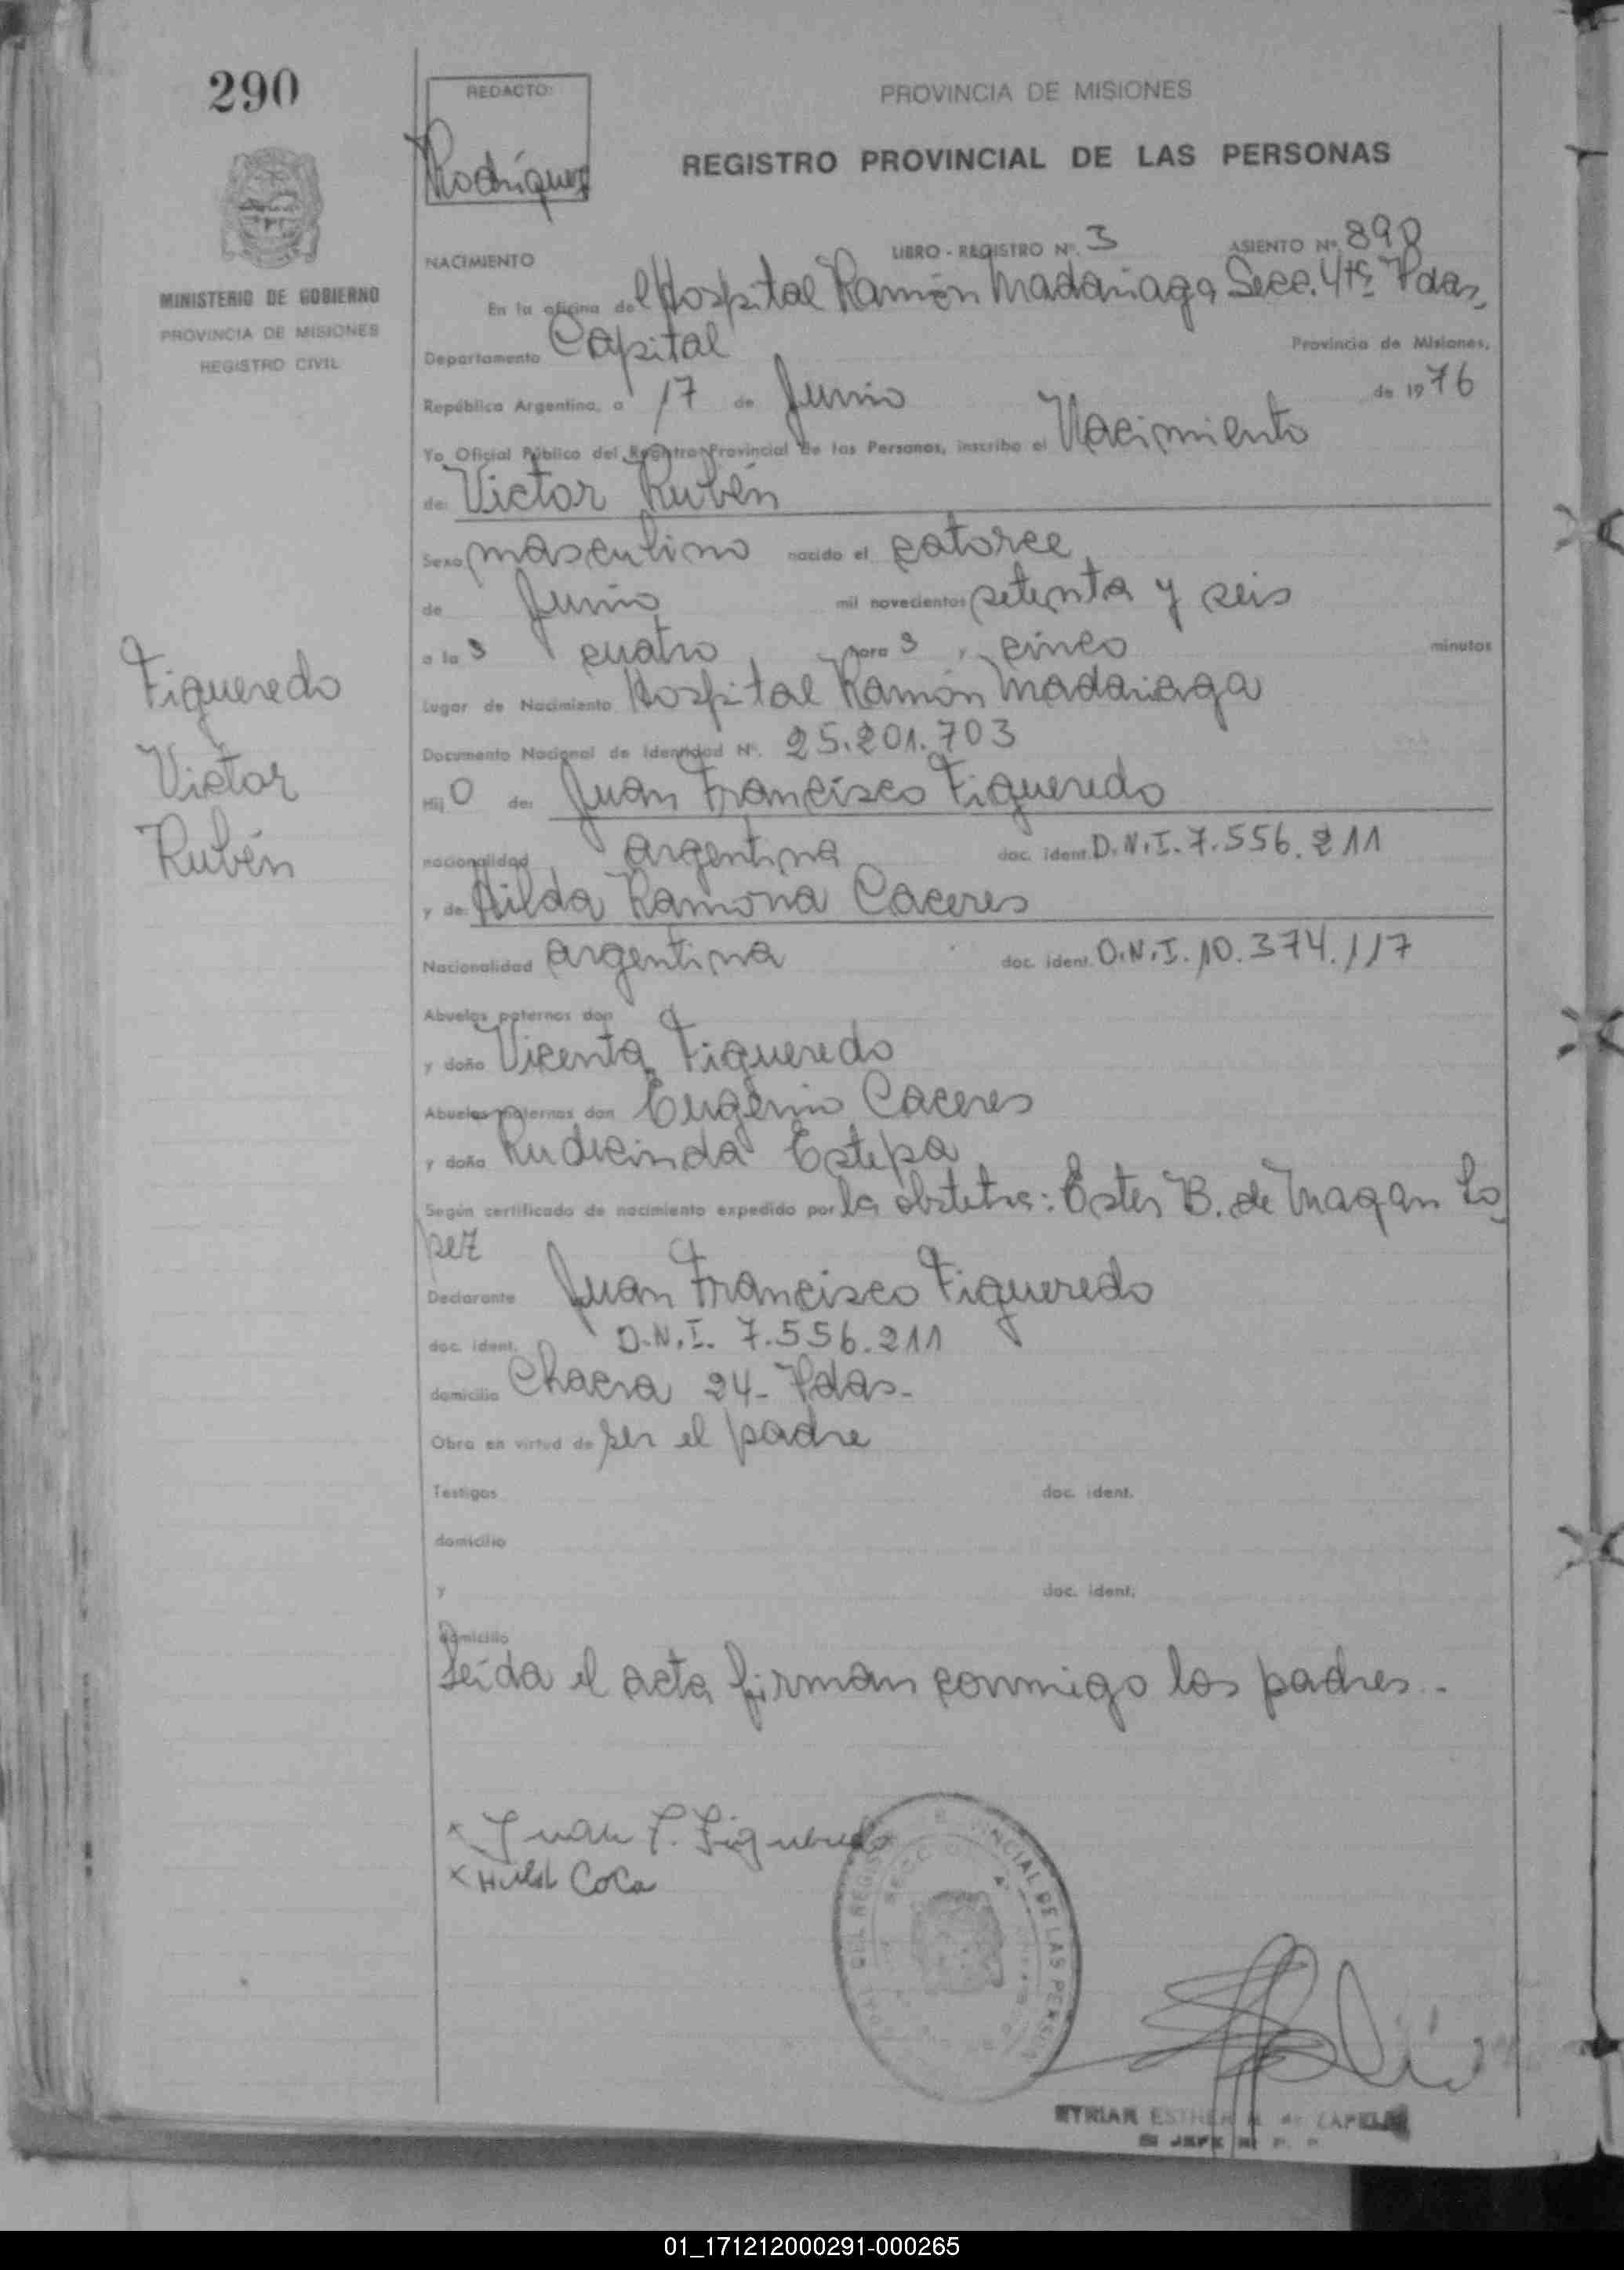 290
REDACTO:
Rodríguez
PROVINCIA DE MISIONES
REGISTRO PROVINCIAL DE LAS PERSONAS
MINISTERIO DE GOBIERNO
PROVINCIA DE MISIONES
REGISTRO CIVIL
NACIMIENTO LIBRO - REGISTRO Nº. 3 ASIENTO Nº. 890
En la oficina del Hospital Ramón Madariaga Secc. 4ta. Pdas,
Departamento Capital Provincia de Misiones,
República Argentina, a 17 de Junio de 1976
Yo Oficial Público del Registro Provincial de las Personas, inscribo el Nacimiento
de: Victor Rubén
Sexo masculino nacido el catorce
de Junio mil novecientos setenta y seis
a las cuatro horas y cinco minutos
Lugar de Nacimiento Hospital Ramón Madariaga
Documento Nacional de Identidad Nº. 25.201.703
Hijo de: Juan Francisco Figueredo
nacionalidad argentina doc. ident. D.N.I. 7.556.211
y de: Hilda Ramona Caceres
Nacionalidad argentina doc. ident. D.N.I. 10.374.117
Figueredo
Victor
Rubén
Abuelos paternos don
y doña Vicenta Figueredo
Abuelos maternos don Eugenio Caceres
y doña Rudecinda Estepa
Según certificado de nacimiento expedido por la obstetra: Ester B. de Magan Lo
pez
Declarante Juan Francisco Figueredo
doc. ident. D.N.I. 7.556.211
domicilio Chacra 24- Pdas-
Obra en virtud de ser el padre
Testigos doc. ident.
domicilio
y doc. ident.
domicilio
Leída el acta firman conmigo los padres.-
x Juan F. Figueredo
x Hilda Coca
DEL REGISTRO PROVINCIAL DE LAS PERSONAS
MYRIAM ESTHER de ZAPELLI
JEFE
01_171212000291-000265